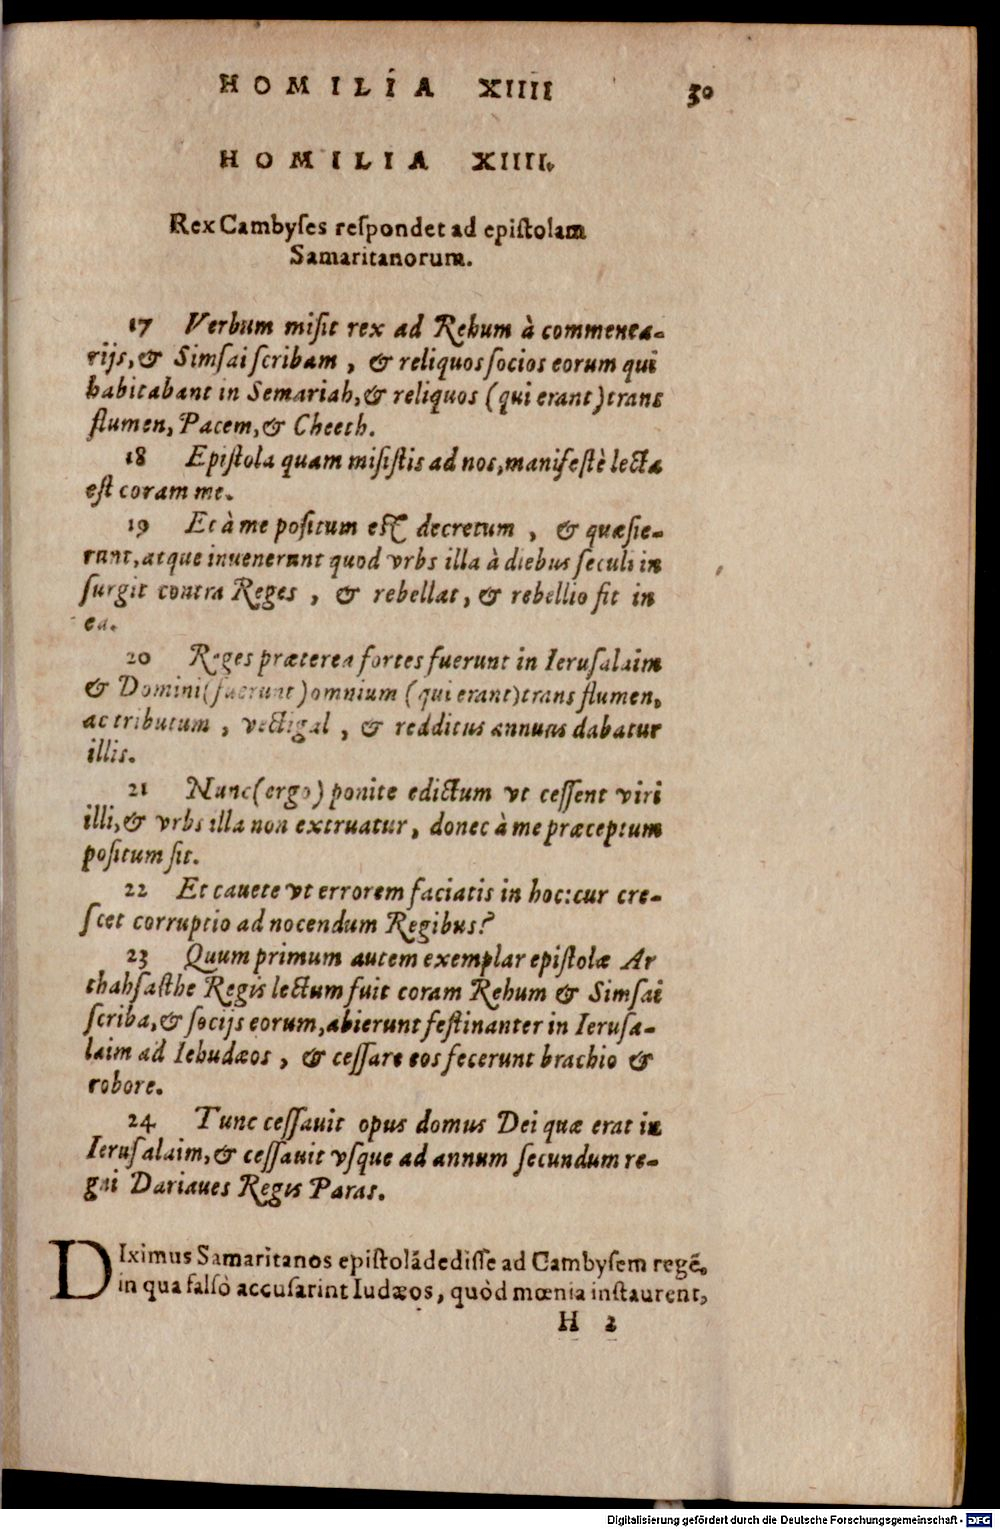 HOMILIA XIIII 50
HOMILIA XIIII.
Rex Cambyses respondet ad epistolam
Samaritanorum.
17 Verbum misit rex ad Rehum à commenta-
rijs, & Simsai scribam, & reliquos socios eorum qui
habitabant in Semariah, & reliquos (qui erant) trans
flumen, Pacem, & Cheeth.
18 Epistola quam misistis ad nos, manifestè lecta
est coram me.
19 Et à me positum est decretum, & quæsie-
runt, atque inuenerunt quod vrbs illa à diebus seculi in
surgit contra Reges, & rebellat, & rebellio fit in
ea.
20 Reges præterea fortes fuerunt in Ierusalaim
& Domini (fuerunt) omnium (qui erant) trans flumen,
ac tributum, vectigal, & redditus annuus dabatur
illis.
21 Nunc (ergo) ponite edictum vt cessent viri
illi, & vrbs illa non extruatur, donec à me præceptum
positum sit.
22 Et cauete vt errorem faciatis in hoc: cur cre-
scet corruptio ad nocendum Regibus?
23 Quum primum autem exemplar epistolæ Ar
thahsasthe Regis lectum fuit coram Rehum & Simsai
scriba, & socijs eorum, abierunt festinanter in Ierusa-
laim ad Iehudæos, & cessare eos fecerunt brachio &
robore.
24 Tunc cessauit opus domus Dei quæ erat in
Ierusalaim, & cessauit vsque ad annum secundum re-
gni Dariaues Regis Paras.
DIximus Samaritanos epistolã dedisse ad Cambysem regẽ,
in qua falsò accusarint Iudæos, quòd mœnia instaurent,
H 2
Digitalisierung gefördert durch die Deutsche Forschungsgemeinschaft - DFG